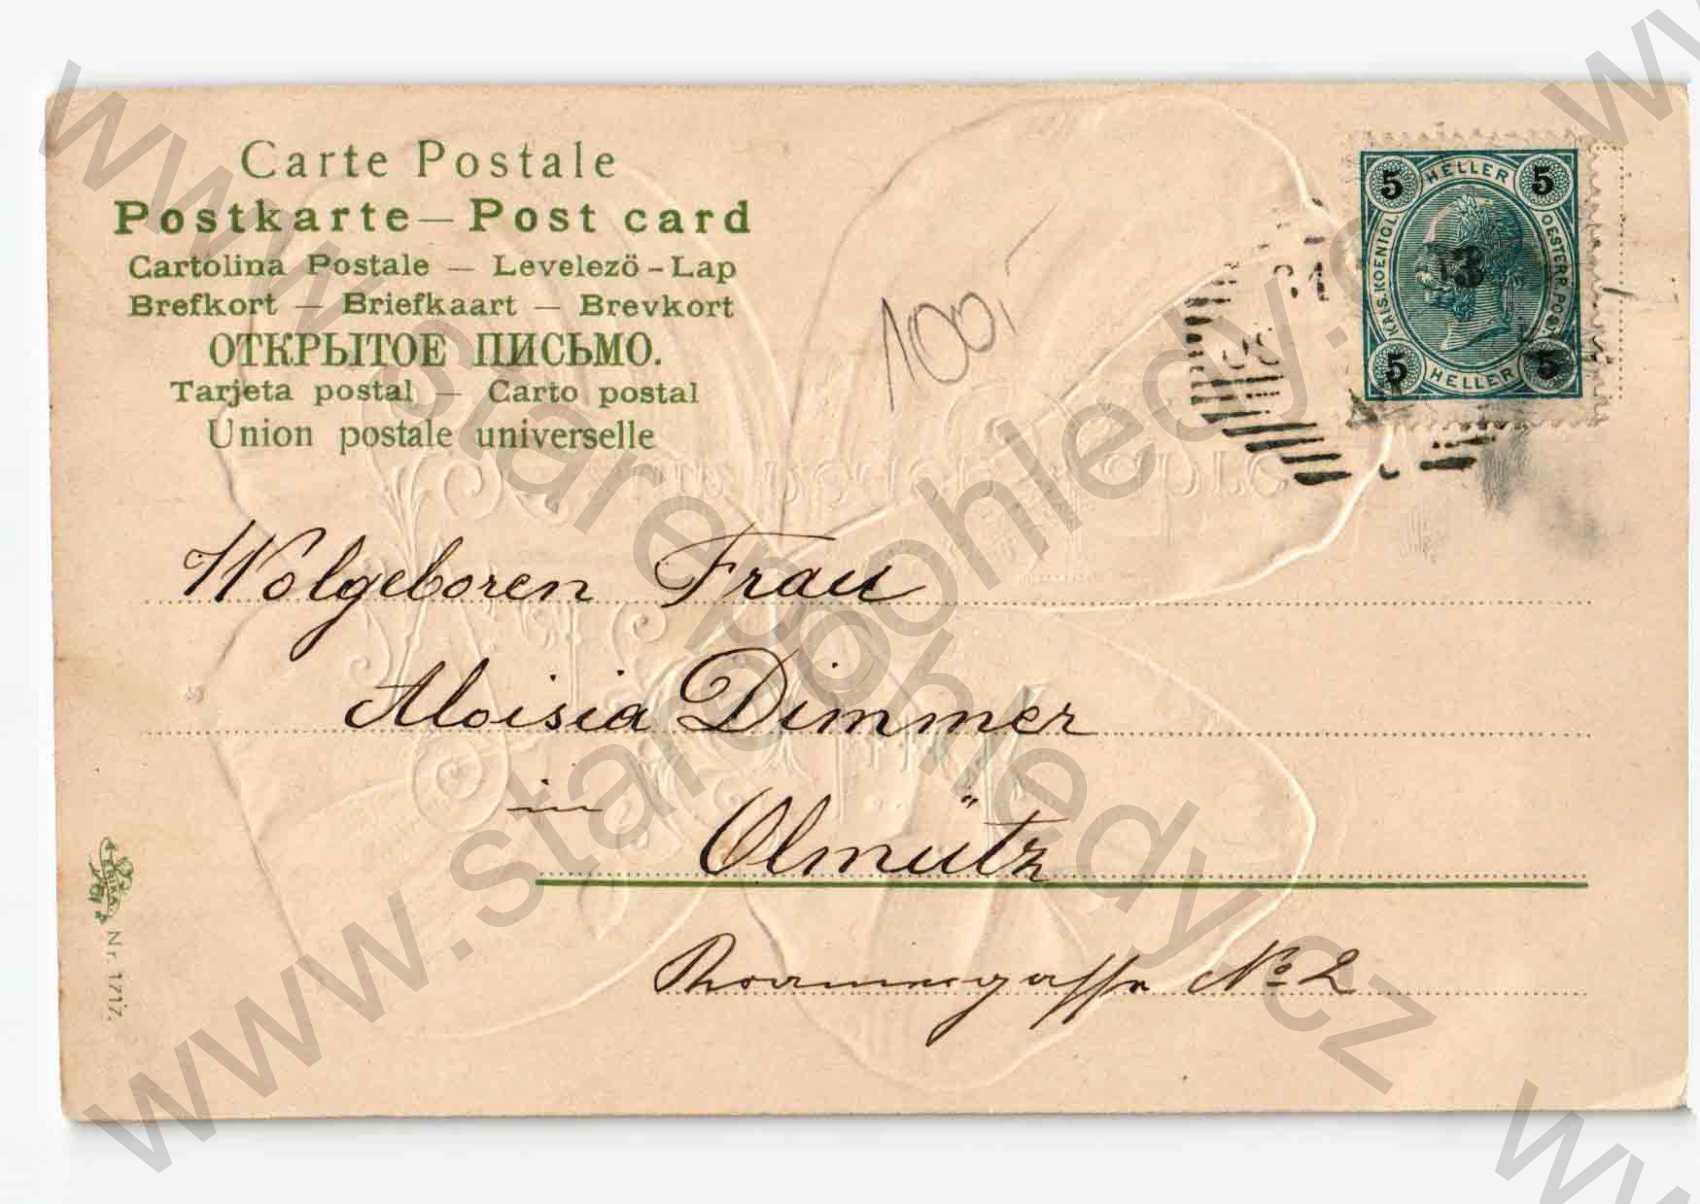 Carte Postale
Postkarte — Post card
Cartolina Postale — Levelező - Lap
Brefkort — Briefkaart — Brevkort
ОТКРЫТОЕ ПИСЬМО.
Tarjeta postal — Carto postal
Union postale universelle
100,-
5 HELLER 5
KAIS. KOENIGL. OESTERR. POST
5 HELLER 5
Wolgeboren Frau
Aloisia Dimmer
in Olmütz
No 2
ERIKA
Nr. 1717.
www.starepohledy.cz
www.starepohledy.cz